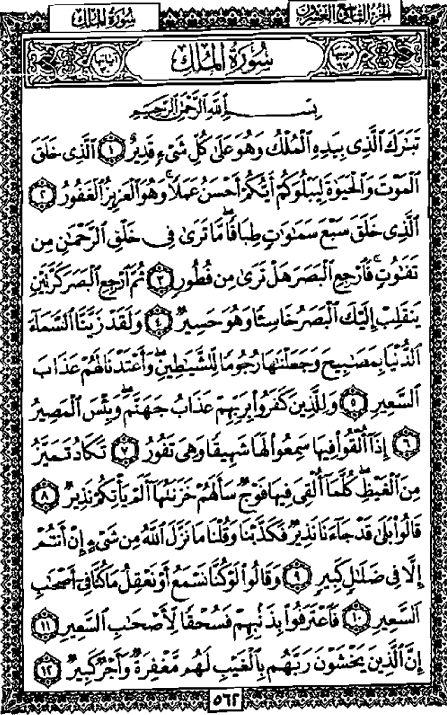 سُورَةُ المُلْكِ
الجُزْءُ التَّاسِعُ وَالعِشْرُونَ
سُورَةُ المُلْكِ
بِسْمِ اللَّهِ الرَّحْمَٰنِ الرَّحِيمِ
تَبَارَكَ الَّذِي بِيَدِهِ الْمُلْكُ وَهُوَ عَلَىٰ كُلِّ شَيْءٍ قَدِيرٌ ١ الَّذِي خَلَقَ
الْمَوْتَ وَالْحَيَاةَ لِيَبْلُوَكُمْ أَيُّكُمْ أَحْسَنُ عَمَلًا ۚ وَهُوَ الْعَزِيزُ الْغَفُورُ ٢
الَّذِي خَلَقَ سَبْعَ سَمَاوَاتٍ طِبَاقًا ۖ مَّا تَرَىٰ فِي خَلْقِ الرَّحْمَٰنِ مِن
تَفَاوُتٍ ۖ فَارْجِعِ الْبَصَرَ هَلْ تَرَىٰ مِن فُطُورٍ ٣ ثُمَّ ارْجِعِ الْبَصَرَ كَرَّتَيْنِ
يَنقَلِبْ إِلَيْكَ الْبَصَرُ خَاسِئًا وَهُوَ حَسِيرٌ ٤ وَلَقَدْ زَيَّنَّا السَّمَاءَ
الدُّنْيَا بِمَصَابِيحَ وَجَعَلْنَاهَا رُجُومًا لِّلشَّيَاطِينِ ۖ وَأَعْتَدْنَا لَهُمْ عَذَابَ
السَّعِيرِ ٥ وَلِلَّذِينَ كَفَرُوا بِرَبِّهِمْ عَذَابُ جَهَنَّمَ ۖ وَبِئْسَ الْمَصِيرُ
٦ إِذَا أُلْقُوا فِيهَا سَمِعُوا لَهَا شَهِيقًا وَهِيَ تَفُورُ ٧ تَكَادُ تَمَيَّزُ
مِنَ الْغَيْظِ ۖ كُلَّمَا أُلْقِيَ فِيهَا فَوْجٌ سَأَلَهُمْ خَزَنَتُهَا أَلَمْ يَأْتِكُمْ نَذِيرٌ ٨
قَالُوا بَلَىٰ قَدْ جَاءَنَا نَذِيرٌ فَكَذَّبْنَا وَقُلْنَا مَا نَزَّلَ اللَّهُ مِن شَيْءٍ إِنْ أَنتُمْ
إِلَّا فِي ضَلَالٍ كَبِيرٍ ٩ وَقَالُوا لَوْ كُنَّا نَسْمَعُ أَوْ نَعْقِلُ مَا كُنَّا فِي أَصْحَابِ
السَّعِيرِ ١٠ فَاعْتَرَفُوا بِذَنبِهِمْ فَسُحْقًا لِّأَصْحَابِ السَّعِيرِ ١١
إِنَّ الَّذِينَ يَخْشَوْنَ رَبَّهُم بِالْغَيْبِ لَهُم مَّغْفِرَةٌ وَأَجْرٌ كَبِيرٌ ١٢
٥٦٢